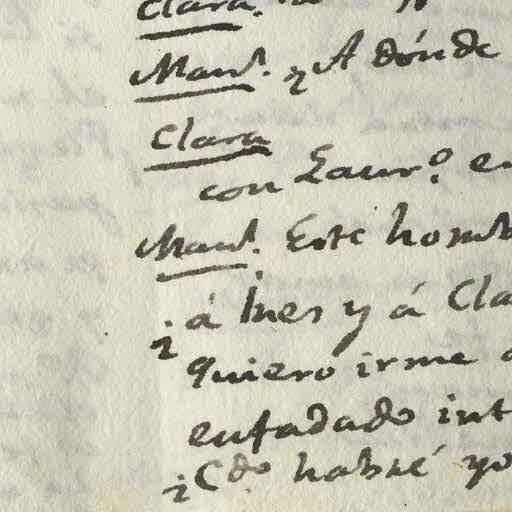 Clara.
Man.l ¿A dónde
Clara
con Laur.o en
Man.l Este homb
á Ines y á Cla
¿quiero irme
enfadado int
¿Cdo habré yo